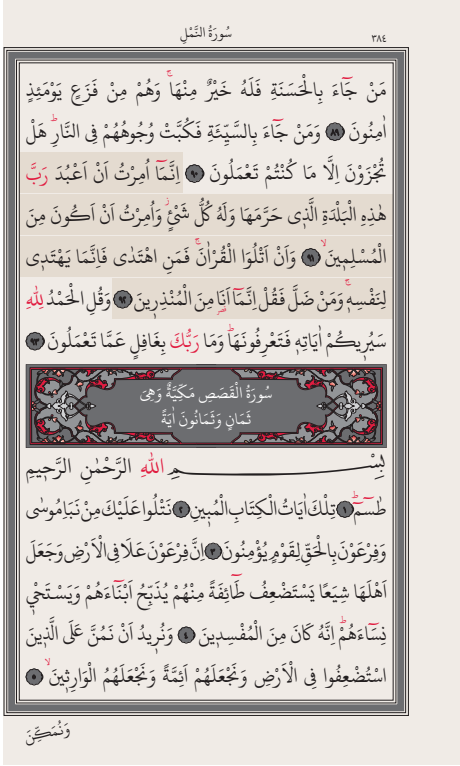 سُورَةُ النَّمْلِ ٣٨٤
مَنْ جَٓاءَ بِالْحَسَنَةِ فَلَهُ خَيْرٌ مِنْهَاۚ وَهُمْ مِنْ فَزَعٍ يَوْمَئِذٍ
اٰمِنُونَ ﴿٨٩﴾ وَمَنْ جَٓاءَ بِالسَّيِّئَةِ فَكُبَّتْ وُجُوهُهُمْ فِي النَّارِۜ هَلْ
تُجْزَوْنَ اِلَّا مَا كُنْتُمْ تَعْمَلُونَ ﴿٩٠﴾ اِنَّمَٓا اُمِرْتُ اَنْ اَعْبُدَ رَبَّ
هٰذِهِ الْبَلْدَةِ الَّذٖى حَرَّمَهَا وَلَهُ كُلُّ شَيْءٍۘ وَاُمِرْتُ اَنْ اَكُونَ مِنَ
الْمُسْلِمٖينَۙ ﴿٩١﴾ وَاَنْ اَتْلُوَا الْقُرْاٰنَۚ فَمَنِ اهْتَدٰى فَاِنَّمَا يَهْتَدٖى
لِنَفْسِهٖۚ وَمَنْ ضَلَّ فَقُلْ اِنَّمَٓا اَنَا۬ مِنَ الْمُنْذِرٖينَ ﴿٩٢﴾ وَقُلِ الْحَمْدُ لِلّٰهِ
سَيُرٖيكُمْ اٰيَاتِهٖ فَتَعْرِفُونَهَاۜ وَمَا رَبُّكَ بِغَافِلٍ عَمَّا تَعْمَلُونَ ﴿٩٣﴾
سُورَةُ الْقَصَصِ مَكِّيَّةٌ وَهِيَ
ثَمَانٍ وَثَمَانُونَ اٰيَةً
بِسْمِ اللّٰهِ الرَّحْمٰنِ الرَّحٖيمِ
طٰسٓمٓۜ ﴿١﴾ تِلْكَ اٰيَاتُ الْكِتَابِ الْمُبٖينِ ﴿٢﴾ نَتْلُوا عَلَيْكَ مِنْ نَبَاِ مُوسٰى
وَفِرْعَوْنَ بِالْحَقِّ لِقَوْمٍ يُؤْمِنُونَ ﴿٣﴾ اِنَّ فِرْعَوْنَ عَلَا فِي الْاَرْضِ وَجَعَلَ
اَهْلَهَا شِيَعًا يَسْتَضْعِفُ طَٓائِفَةً مِنْهُمْ يُذَبِّحُ اَبْنَٓاءَهُمْ وَيَسْتَحْيٖ
نِسَٓاءَهُمْۜ اِنَّهُ كَانَ مِنَ الْمُفْسِدٖينَ ﴿٤﴾ وَنُرٖيدُ اَنْ نَمُنَّ عَلَى الَّذٖينَ
اسْتُضْعِفُوا فِي الْاَرْضِ وَنَجْعَلَهُمْ اَئِمَّةً وَنَجْعَلَهُمُ الْوَارِثٖينَۙ ﴿٥﴾
وَنُمَكِّنَ